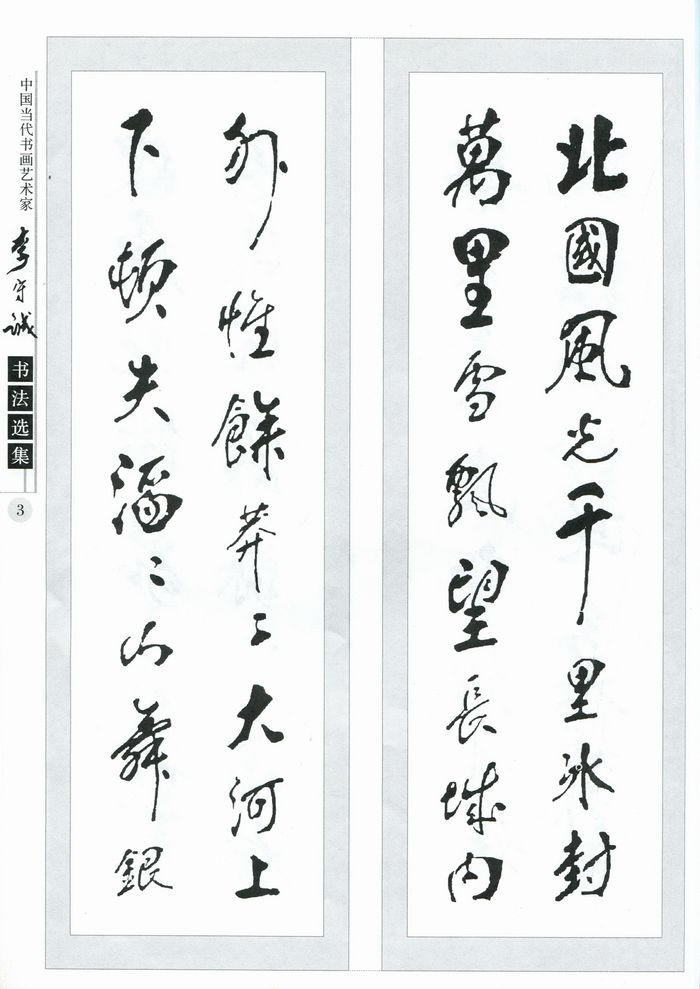 北國風光千里冰封
萬里雪飄望長城內
外惟餘莽〻大河上
下頓失滔〻山舞銀
中国当代书画艺术家
李守誠
书法选集
3